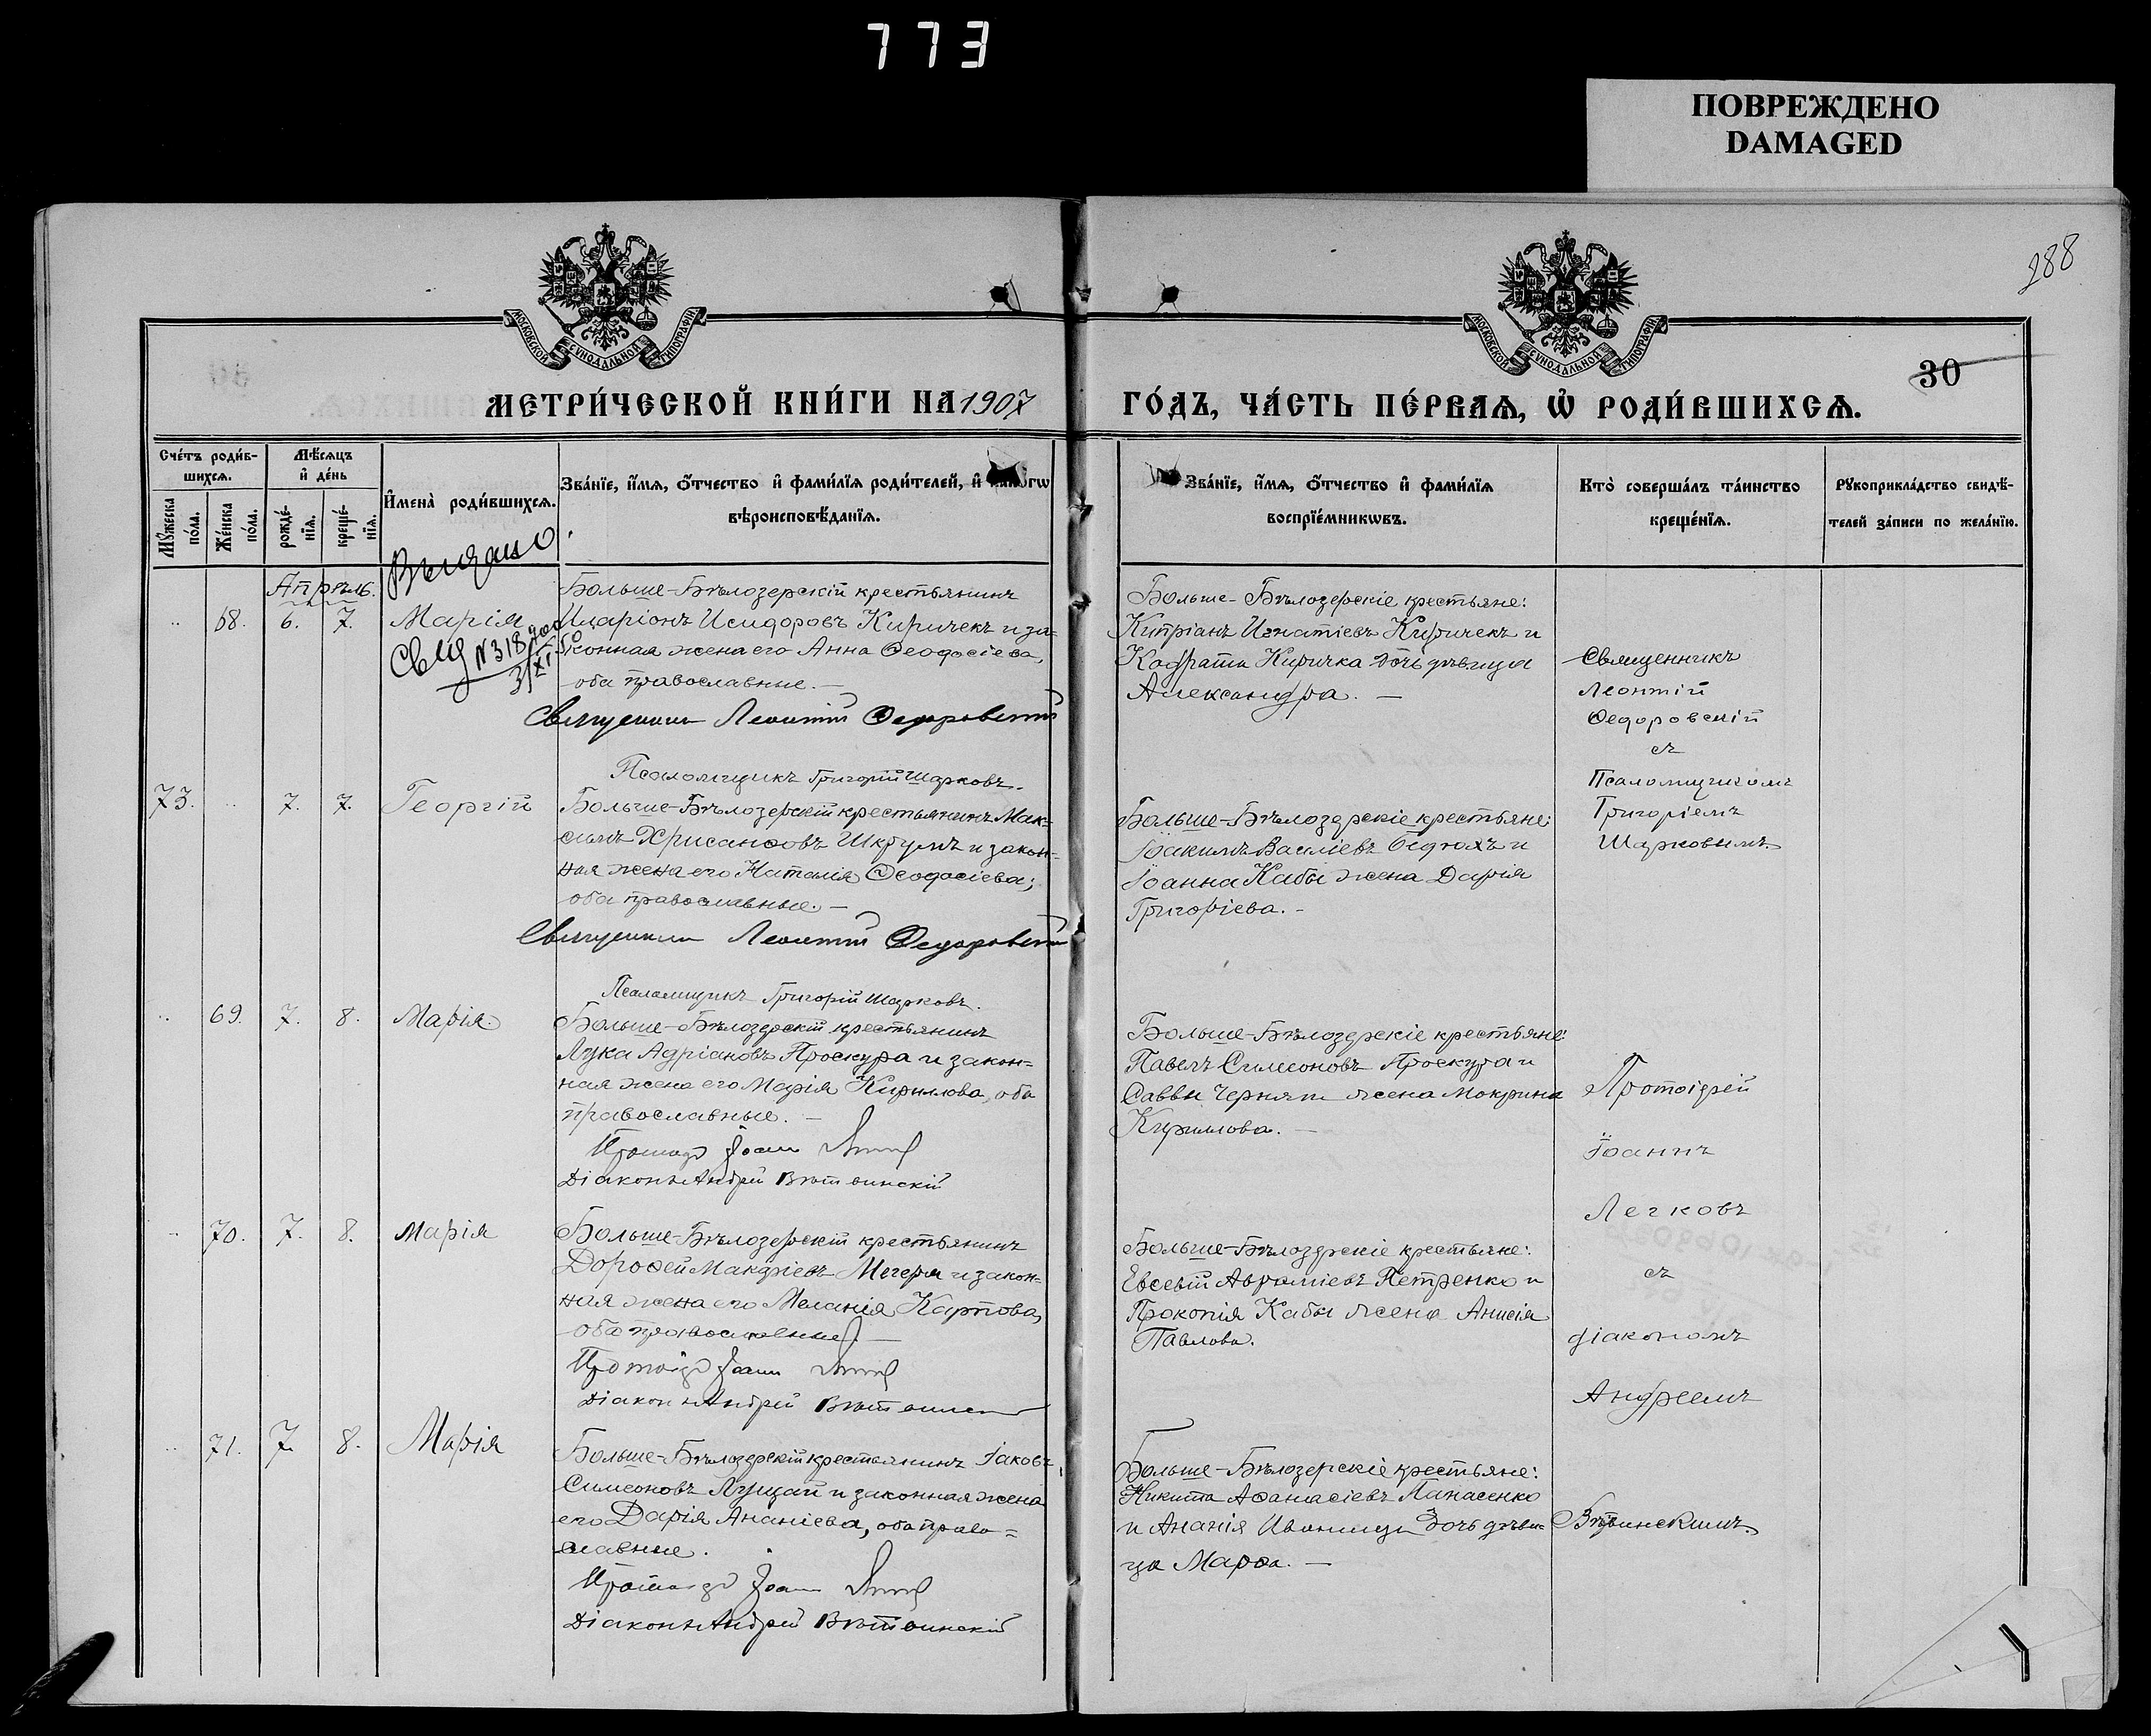 773
ПОВРЕЖДЕНО
DAMAGED
288
МОСКОВСКОЙ СУНОДАЛЬНОЙ ТИПОГРАФІИ
МОСКОВСКОЙ СУНОДАЛЬНОЙ ТИПОГРАФІИ
30
МЕТРИ́ЧЕСКОЙ КНИ́ГИ НА 1907
ГО́ДЪ, ЧА́СТЬ ПЕ́РВАѦ, Ѡ҆ РОДИ́ВШИХСѦ.
Сче́тъ роди́в-
шихсѧ.
Мѣ́сѧцъ
и҆ де́нь
Мꙋ́жеска
по́ла.
Же́нска
по́ла.
рожде́-
нїѧ.
креще́-
нїѧ.
И҆мена̀ роди́вшихсѧ.
Зва́нїе, и҆́мѧ, ѻ҆́тчество и҆ фами́лїѧ роди́телей, и҆
вѣроисповѣ́данїѧ.
Зва́нїе, и҆́мѧ, ѻ҆́тчество и҆ фами́лїѧ
воспрїе́мникѡвъ.
Кто̀ соверша́лъ та́инство
креще́нїѧ.
Рꙋкоприкла́дство свидѣ́-
телей за́писи по жела́нїю.
Выдано
Апрѣль.
68. 6. 7. Марія
Свид №318
3/XI
Больше-Бѣлозерскій крестьянинъ
Иларіонъ Исидоровъ Киричекъ и за-
конная жена его Анна Ѳеодосіева,
оба православные. —
Священникъ Леонтій Ѳедоровскій
Псаломщикъ Григорій Шарковъ.
Больше-Бѣлозерскіе крестьяне:
Кипріанъ Игнатіевъ Киричекъ и
Кодрата Киричка дочь дѣвица
Александра. —
Священникъ
Леонтій
Ѳедоровскій
съ
Псаломщикомъ
Григоріемъ
Шарковымъ.
73. 7. 7. Георгій
Больше-Бѣлозерскій крестьянинъ Мак-
симъ Хрисанѳовъ Шкрумъ и закон-
ная жена его Наталія Ѳеодосіева;
оба православные. —
Священникъ Леонтій Ѳедоровскій
Псаломщикъ Григорій Шарковъ.
Больше-Бѣлозерскіе крестьяне:
Іоакимъ Василіевъ и
Іоанна Кабы жена Дарія
Григоріева. -
69. 7. 8. Марія
Больше-Бѣлозерскій крестьянинъ
Лука Адріановъ Проскура и закон-
ная жена его Марія Кириллова, оба
православные. —
Протоіер Іоанн
Діаконъ Андрей Вѣтвинскій
Больше-Бѣлозерскіе крестьяне:
Павелъ Симеоновъ Проскура и
Саввы жена Мокрина
Кириллова. —
Протоіерей
Іоаннъ
Легковъ
съ
діакономъ
Андреемъ
Вѣтвинскимъ.
70. 7. 8. Марія
Больше-Бѣлозерскій крестьянинъ
Дороѳей Макаріевъ Мегеря и закон-
ная жена его Меланія Карпова,
оба православные. —
Протоіер Іоанн
Діаконъ Андрей Вѣтвинскій
Больше-Бѣлозерскіе крестьяне:
Евсевій Авраміевъ Петренко и
Прокопія Кабы жена Анисія
Павлова.
71. 7. 8. Марія
Больше-Бѣлозерскій крестьянинъ Іаковъ
Симеоновъ Лущай и законная жена
его Дарія Ананіева, оба право-
славные.
Протоіер Іоанн
Діаконъ Андрей Вѣтвинскій
Больше-Бѣлозерскіе крестьяне:
Никита Аѳанасіевъ Панасенко
и Ананія Иваницы дочь дѣви-
ца Марѳа. —